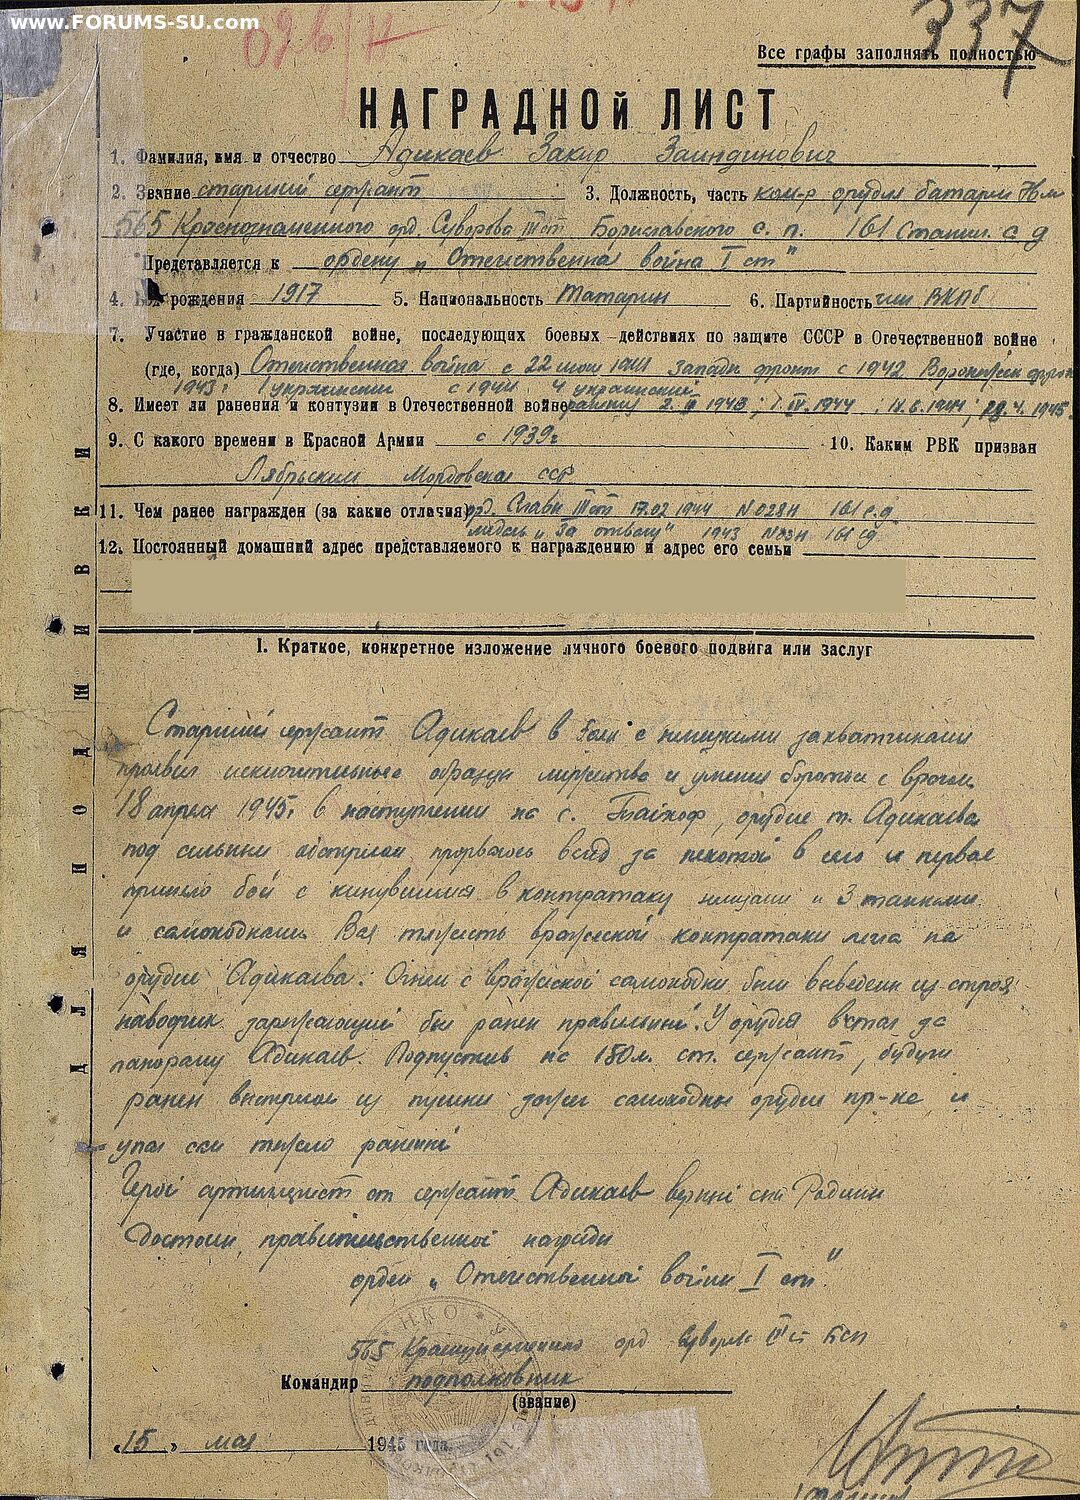 www.FORUMS-SU.com
337
Все графы заполнять полностью
НАГРАДНОЙ ЛИСТ
1. Фамилия, имя и отчество Адикаев Закир Заиндинович
2. Звание старший сержант 3. Должность, часть ком-р орудия батареи
565 Краснознаменного орд. Суворова III ст Бориславского с. п. 161 Станил. с д
Представляется к ордену „Отечественна война I ст"
4. рождения 1917 5. Национальность Татарин 6. Партийность чл ВКПб
7. Участие в гражданской войне, последующих боевых действиях по защите СССР в Отечественной войне
(где, когда) Отечественная война с 22 июня 1941 Западн фронт с 1942 Воронежск фронт
1943г 1 украинский с 1944 4 украинский
8. Имеет ли ранения и контузии в Отечественной войне 1943; IV. 1944; 1944; 1945
9. С какого времени в Красной Армии с 1939г 10. Каким РВК призван
Лябрьским Мордовская ССР
11. Чем ранее награжден (за какие отличия) орд. Славы III ст 17.02 1944 N 028Н 161 с.д.
медаль „За отвагу" 1943 161 сд
12. Постоянный домашний адрес представляемого к награждению и адрес его семьи
ДЛЯ ПОДШИВКИ
I. Краткое, конкретное изложение личного боевого подвига или заслуг
Старший сержант Адикаев в боях с немецкими захватчиками
проявил исключительные образцы мужества и умения бороться с врагом.
18 апреля 1945г. в наступлении на с. орудие т. Адикаева
под сильным обстрелом прорвалось вслед за пехотой в село и первое
приняло бой с кинувшимися в контратаку немцами и 3 танками
и самоходками. Вся тяжесть вражеской контратаки легла на
орудие Адикаева. Огнем с вражеской самоходки были выведены из строя
наводчик заряжающий был ранен правильный. У орудия встал за
панораму Адикаев. Подпустив на 150м. ст. сержант, будучи
ранен выстрелом из пушки зажег самоходные орудие пр-ка и
упал сам тяжело ранений
Герой артиллерист ст сержант Адикаев верный сын Родины
достоин правительственной награды
орден „Отечественной войны I ст"
565 Краснознаменного орд Суворова III ст Бсп
Командир подполковник
(звание)
„15" мая 1945 года.